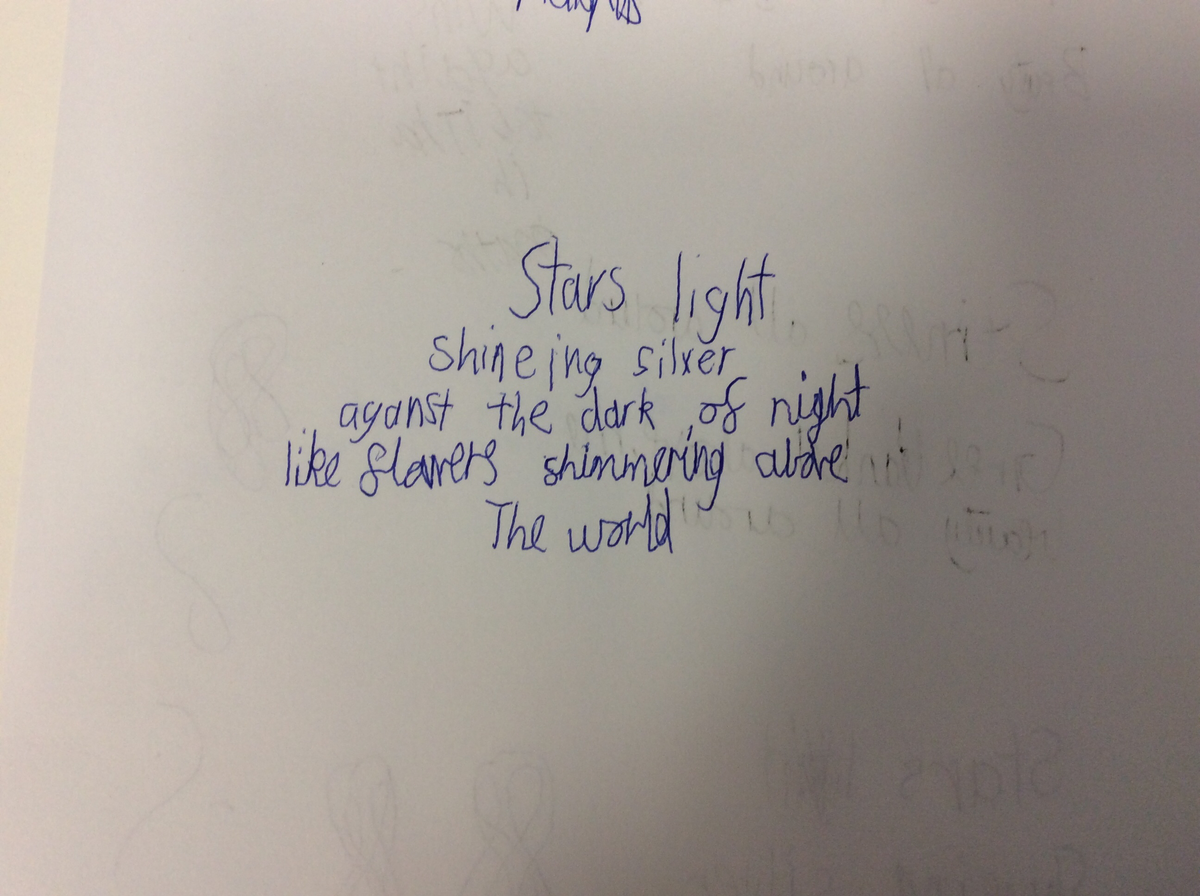 Stars light
shineing silver
aganst the dark of night
like flowers shimmering above
The world